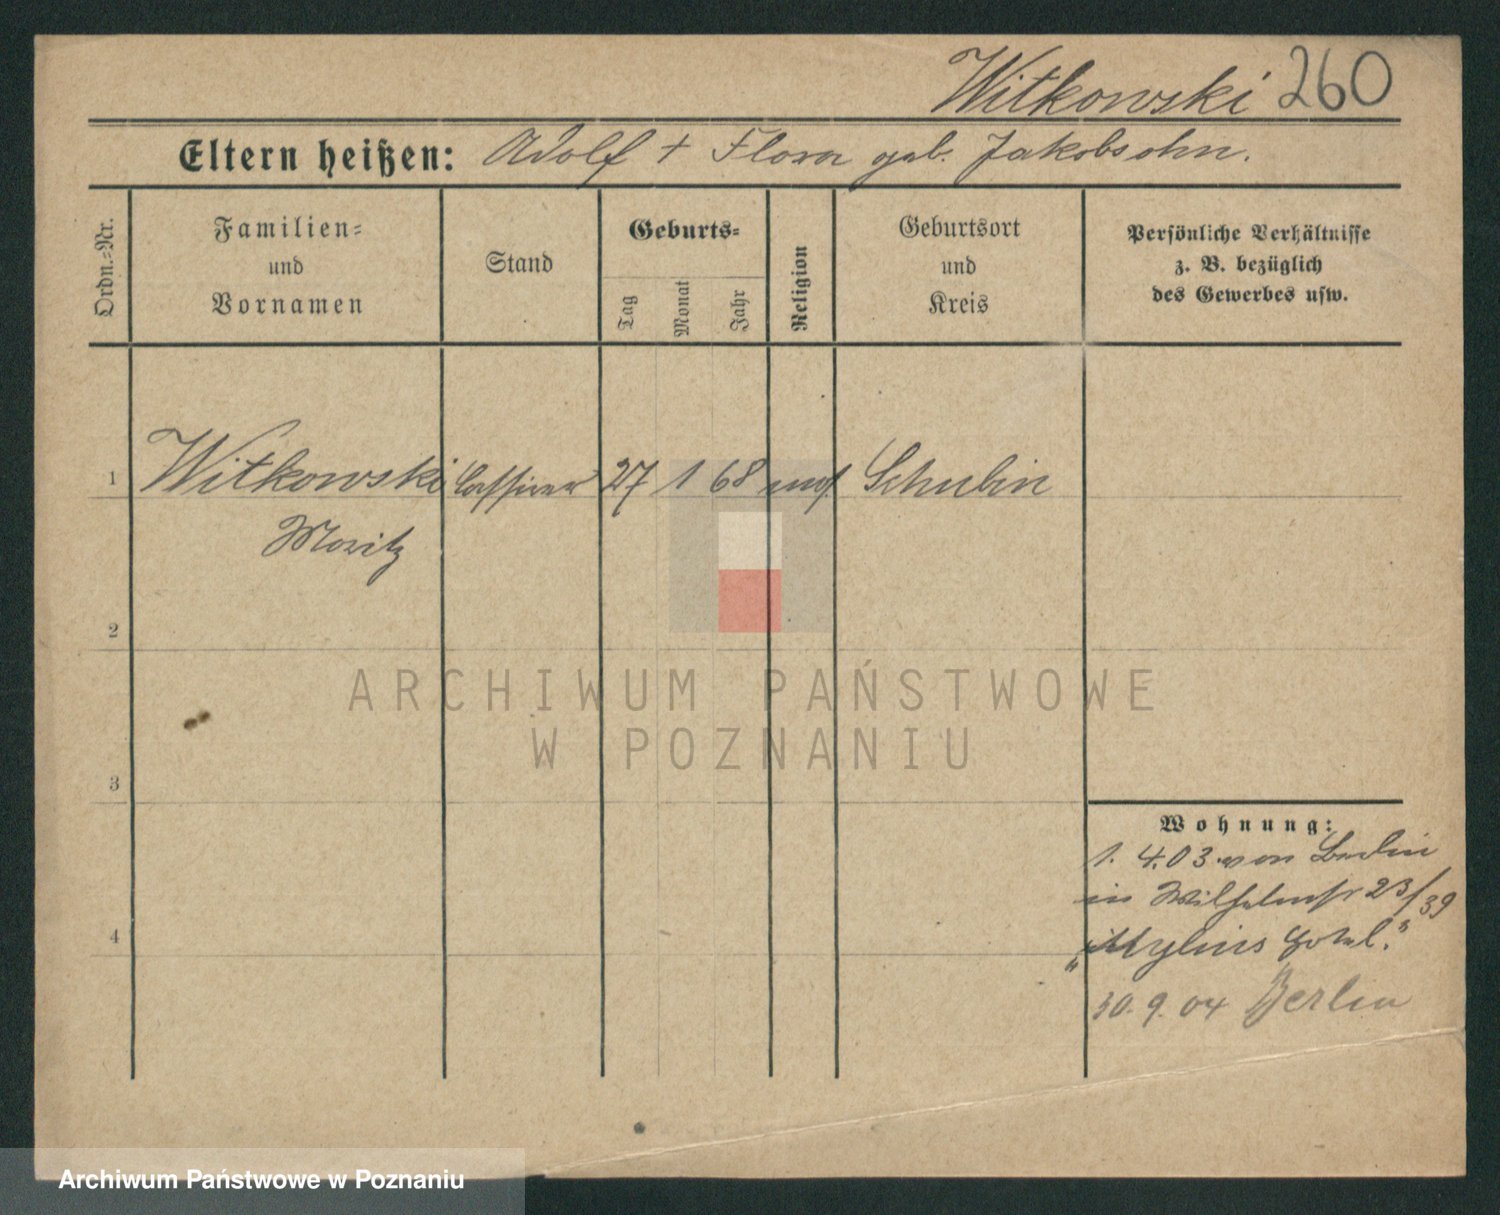 Witkowski 260
Eltern heißen: Adolf + Flora geb. Jakobsohn.
Ordn.-Nr.
Familien-
und
Vornamen
Stand
Geburts-
Tag
Monat
Jahr
Religion
Geburtsort
und
Kreis
Persönliche Verhältnisse
z. B. bezüglich
des Gewerbes usw.
1 Witkowski Cassirer 27 1 68 mos Schubin
Moritz
2
3
4
Wohnung:
1. 4.03 von Berlin
in Wilhelmstr 23/39
„Mylius Hotel."
30. 9. 04 Berlin
ARCHIWUM PAŃSTWOWE
W POZNANIU
Archiwum Państwowe w Poznaniu